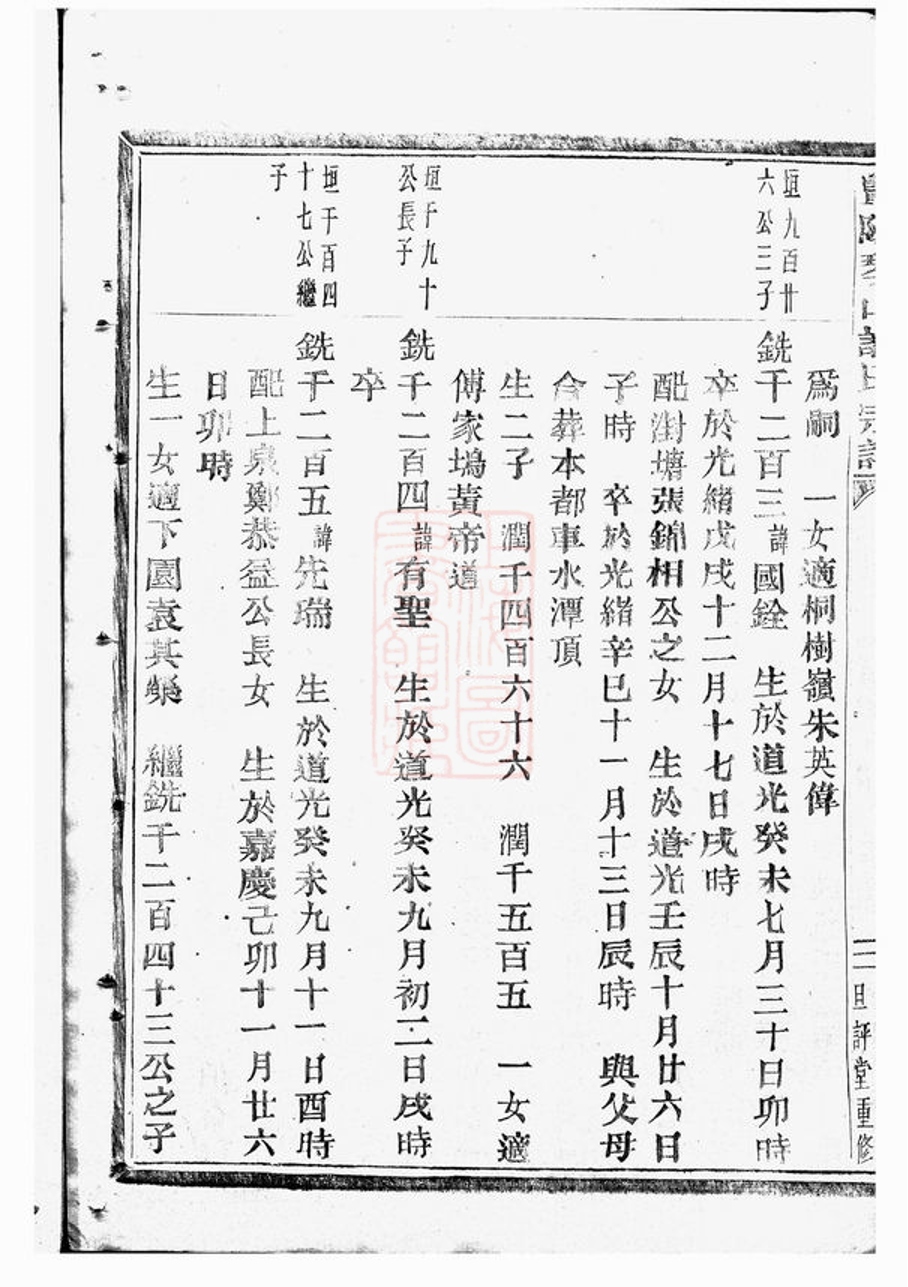 爲嗣 一女適桐樹嶺朱英偉
垣九百廿
六公三子
銑千二百三諱國銓 生於道光癸未七月三十日卯時
卒於光緒戊戌十二月十七日戌時
配澍塘張錦相公之女 生於道光壬辰十月廿六日
子時 卒於光緒辛巳十一月十三日辰時 與父母
合葬本都車水潭頂
生二子 潤千四百六十六 潤千五百五 一女適
傅家塢黃帝道
垣千九十
公長子
銑千二百四諱有聖 生於道光癸未九月初二日戌時
卒
垣千百四
十七公繼
子
銑千二百五諱先瑞 生於道光癸未九月十一日酉時
配上泉鄭恭益公長女 生於嘉慶己卯十一月廿六
日卯時
生一女適下園袁其榮 繼銑千二百四十三公之子
二 旦評堂重修